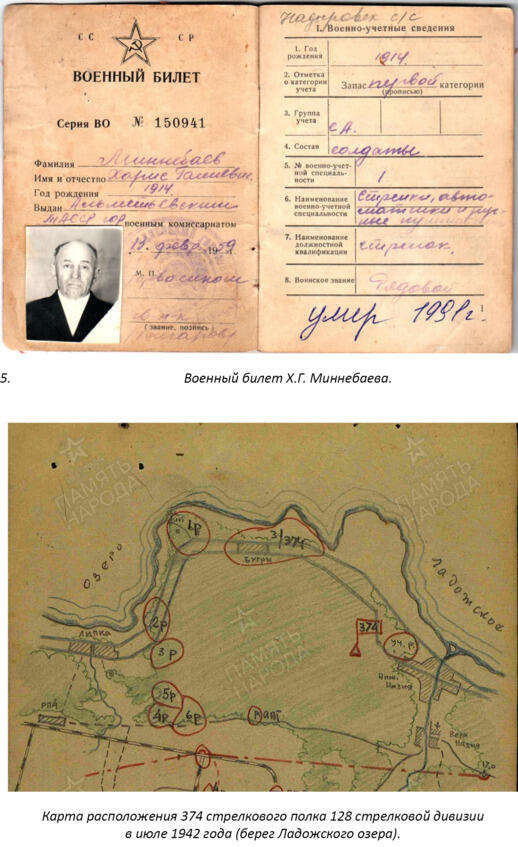 СС СР
ВОЕННЫЙ БИЛЕТ
Серия ВО № 150941
Фамилия Миннебаев
Имя и отчество Харис
Год рождения 1914
Выдан Альметьевским
ТАССР военным комиссариатом
1959
М. П.
(звание, подпись)
Надировск с/с
I. Военно-учетные сведения
1. Год рождения 1914
2. Отметка о категории учета Запас первой категории
(прописью)
3. Группа учета СА.
4. Состав солдаты
5. № военно-учетной специальности 1
6. Наименование военно-учетной специальности Стрелки, автоматчики и
7. Наименование должностной квалификации стрелок.
8. Воинское звание Рядовой
1
умер 1991г.
5. Военный билет Х.Г. Миннебаева.
ПАМЯТЬ НАРОДА
ПАМЯТЬ НАРОДА
ОЗЕРО
ЛАДОЖСКОЕ
1р
3/374
БУГРЫ
2р
ЛИПКА
3р
374
уч. р.
Ниж. Назия
5р
4р
6р
РП4
Верх Назия
17,0
ПАМЯТЬ НАРОДА
Карта расположения 374 стрелкового полка 128 стрелковой дивизии
в июле 1942 года (берег Ладожского озера).